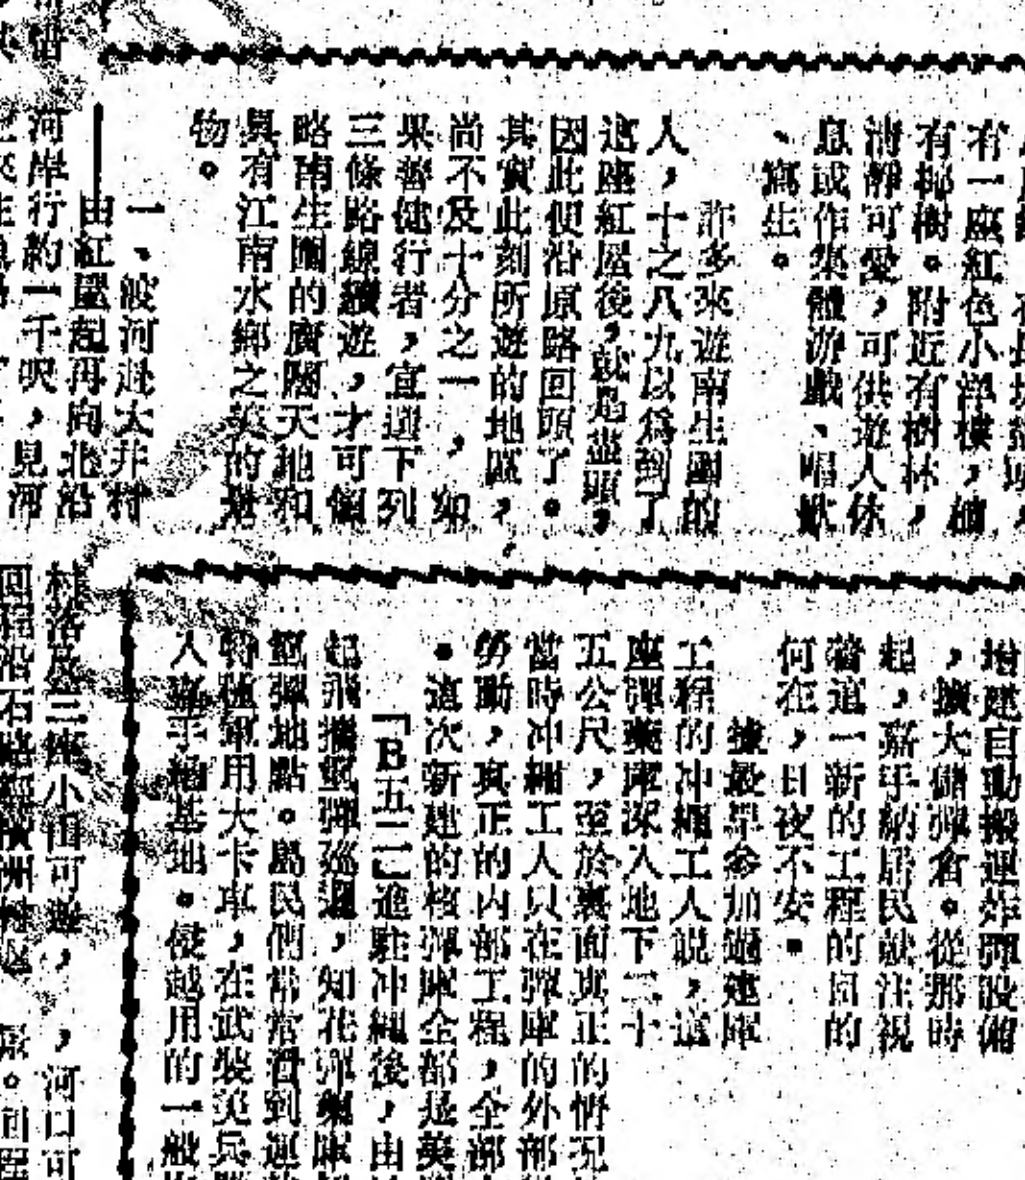 有一座紅色小洋樓，植
有椰樹。附近有樹林，
清靜可愛，可供遊人休
息或作集體游戲、唱歌
、寫生。
許多來遊南生圍的
人，十之八九以爲到了
這座紅屋後，就是盡頭，
因此便沿原路回頭了。
其實此刻所遊的地區，
尚不及十分之一，如
果善健行者，宜選下列
三條路線續遊，才可領
略南生圍的廣闊天地和
具有江南水鄉之美的
物。
一、渡河赴大井村
——由紅屋起再向北沿
河岸行約一千呎，見河
增建自動搬運炸彈設備
，擴大儲彈倉。從那時
起，嘉手納居民就注視
著這一新的工程的目的
何在，日夜不安。
據最早參加過建庫
工程的沖繩工人說，這
座彈藥庫深入地下二十
五公尺，至於裏面真正的情況
當時沖繩工人只在彈庫的外部
勞動，真正的內部工程，全部
。這次新建的核彈庫全部是美
「B五二」進駐沖繩後，由
起飛攜氫彈巡邏，知花彈藥庫
氫彈地點。島民們常常看到運
特種軍用大卡車，在武裝美兵
入嘉手納基地。侵越用的一般
村落及三座小山可遊，
，河口可
回程沿石路經橫洲村返